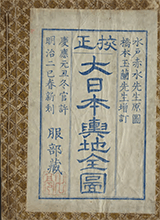 校正
水戸赤水先生原圖
橋本玉蘭先生增訂
大日本輿地全圖
慶應元丑冬官許
明治二巳春新刻
服部藏